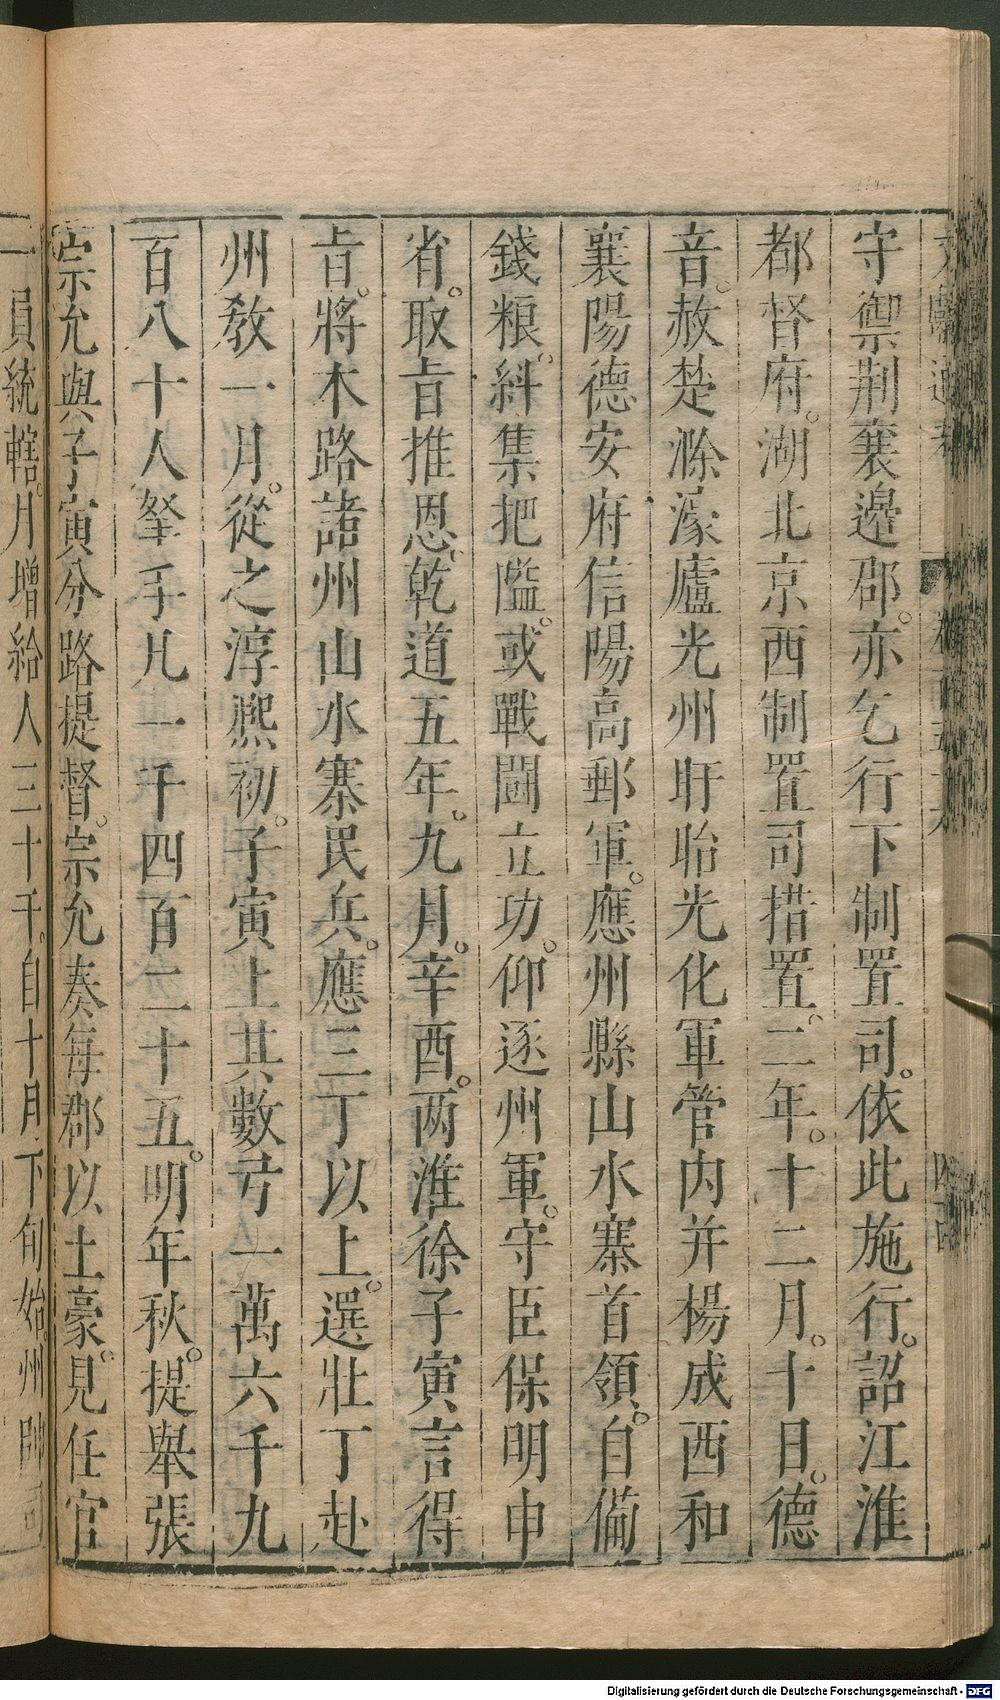 守禦荆襄邊郡。亦乞行下制置司。依此施行。詔江淮
都督府。湖北京西制置司措置。二年。十二月。十日。德
音。赦楚滁濠廬光州盱眙光化軍管内并楊成西和
襄陽德安府信陽高郵軍。應州縣山水寨首領。自備
錢粮。糾集把隘。或戰鬪立功。仰逐州軍。守臣保明申
省。取旨推恩。乾道五年。九月。辛酉。两淮徐子寅言得
旨。將木路諸州山水寨民兵。應三丁以上。選壯丁赴
州教一月。從之淳熙初。子寅上其數弓一萬六千九
百八十人弩手凡一千四百二十五。明年秋。提舉張
宗允與子寅分路提督。宗允奏每郡以土豪。見任官
一員統轄。月增給人三十千。自十月下旬始州帥司
Digitalisierung gefördert durch die Deutsche Forschungsgemeinschaft - DFG